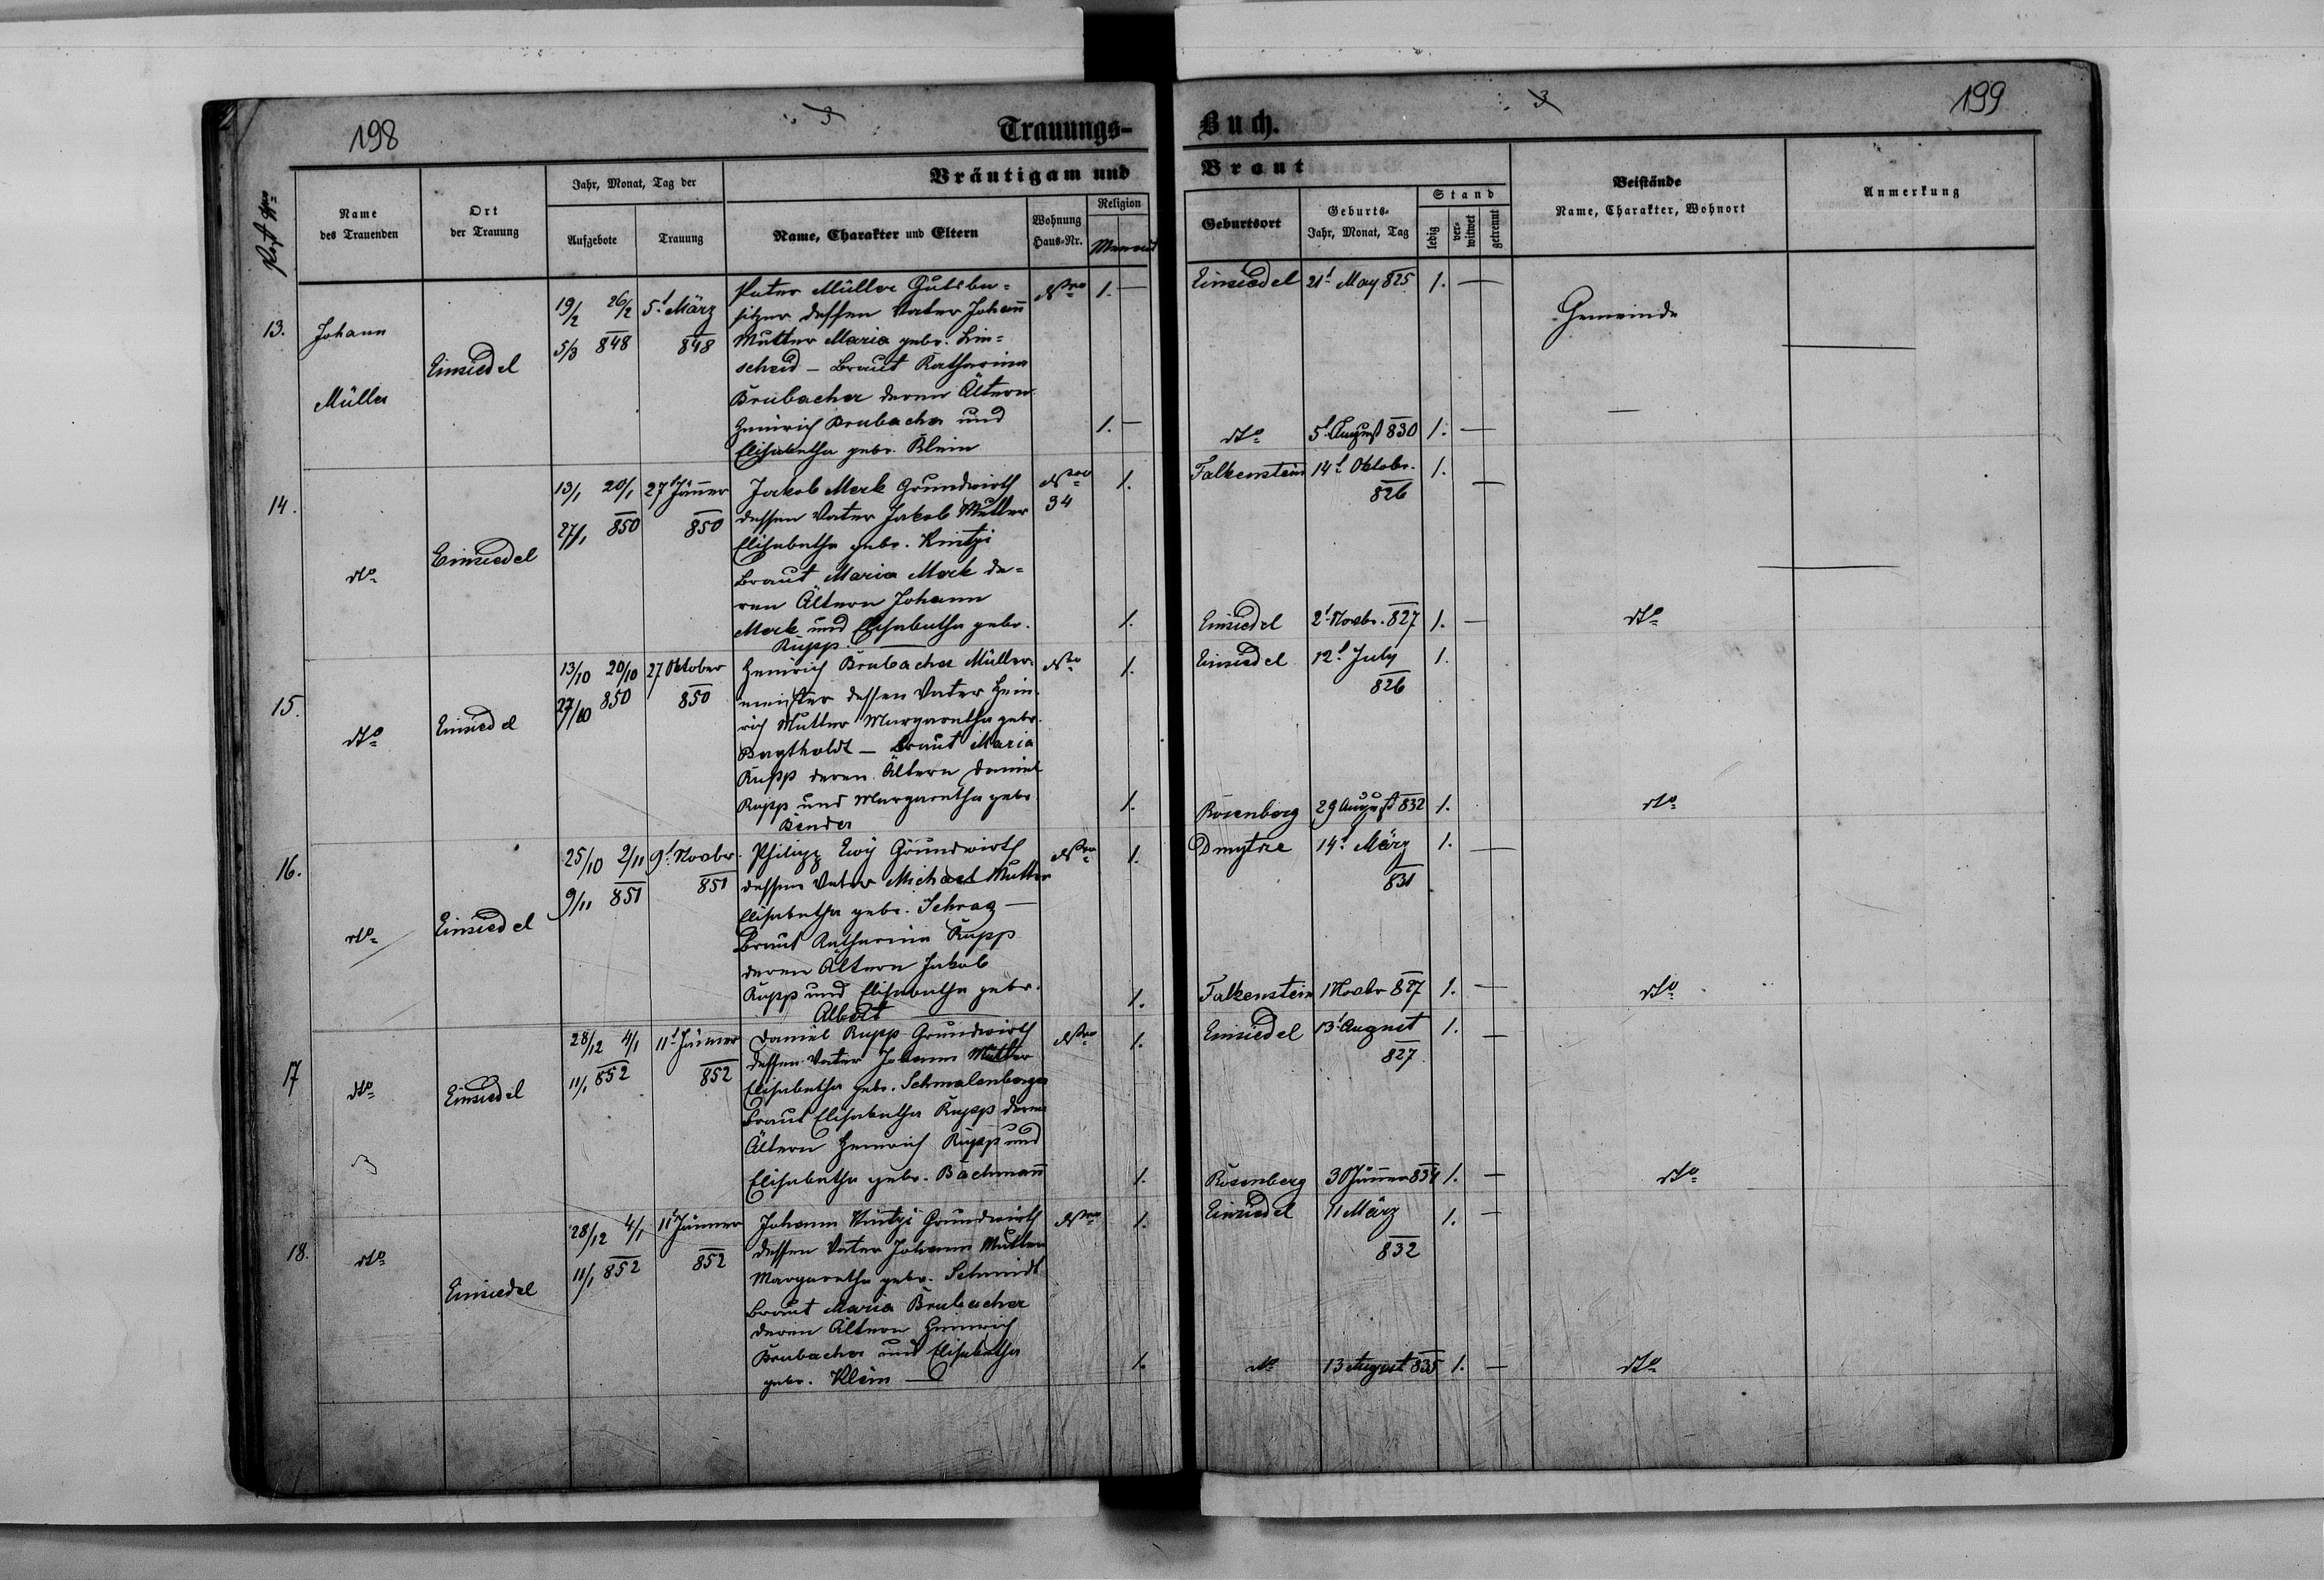 198
Trauungs-
Bräutigam und
Post Nro
Name des Trauenden
Ort der Trauung
Jahr, Monat, Tag der
Aufgebote
Trauung
Name, Charakter und Eltern
Wohnung Haus-Nr.
Religion
13.
Johann
Müller
Einsiedel
19/2 26/2
5/3 848
5t März
848
Peter Müller Gutsbe=
sitzer dessen Vater Johann
Mutter Maria gebr. Lin=
scheid – Braut Katharina
Brubacher deren Ältern
Heinrich Brubacher und
Elisabetha gebr. Klein
Nro
1. —
1. —
14.
dto
Einsiedel
13/1 20/1
27/1 850
27t Jänner
850
Jakob Merk Grundwirth
dessen Vater Jakob Mutter
Elisabetha gebr. Kintzi
Braut Maria Merk de=
ren Ältern Johann
Merk und Elisabetha gebr.
Rupp
Nro
34
1.
1.
15.
dto
Einsiedel
13/10 20/10
27/10 850
27 Oktober
850
Heinrich Brubacher Müller=
meister dessen Vater Hein=
rich Mutter Margaretha gebr.
Bagtholdt – Braut Maria
Rupp deren Ältern Daniel
Rupp und Margaretha gebr.
Bender
Nro
1.
1.
16.
dto
Einsiedel
25/10 2/11
9/11 851
9t Novbr.
851
Philipp Ewÿ Grundwirth
dessen Vater Michael Mutter
Elisabetha gebr. Schrag —
Braut Katharina Rupp
deren Ältern Jakob
Rupp und Elisabetha gebr.
Albert
Nro
1.
1.
17
dto
Einsiedel
28/12 4/1
11/1 852
11t Jänner
852
Daniel Rupp Grundwirth
dessen Vater Johann Mutter
Elisabetha gebr. Schmalenberger
Braut Elisabetha Rupp deren
Ältern Heinrich Rupp und
Elisabetha gebr. Bachmann
Nro
1.
1.
18.
dto
Einsiedel
28/12 4/1
11/1 852
11t Jänner
852
Johann Kintzi Grundwirth
dessen Vater Johann Mutter
Margaretha gebr. Schmidt
Braut Maria Brubacher
deren Ältern Heinrich
Brubacher und Elisabetha
gebr. Klein —
Nro
1.
1.
199
Buch.
Braut
Geburtsort
Geburts-
Jahr, Monat, Tag
Stand
ledig
ver-
witwet
getrennt
Beistände
Name, Charakter, Wohnort
Anmerkung
Einsiedel 21t May 825 1. —
Gemeinde
dto 5t August 830 1. —
Falkenstein 14t Oktobr. 1.
826
Einsiedel 2t Novbr. 827 1. — dto
Einsiedel 12t July 1.
826
Rosenberg 29 August 832 1. dto
Dmytrze 14t März 1. —
831
Falkenstein 1 Novbr 827 1. — dto
Einsiedel 13t August 1. —
827
Rosenberg 30 Jänner 834 1. — dto
Einsiedel 11 März 1. —
832
dto 13 August 835 1. — dto